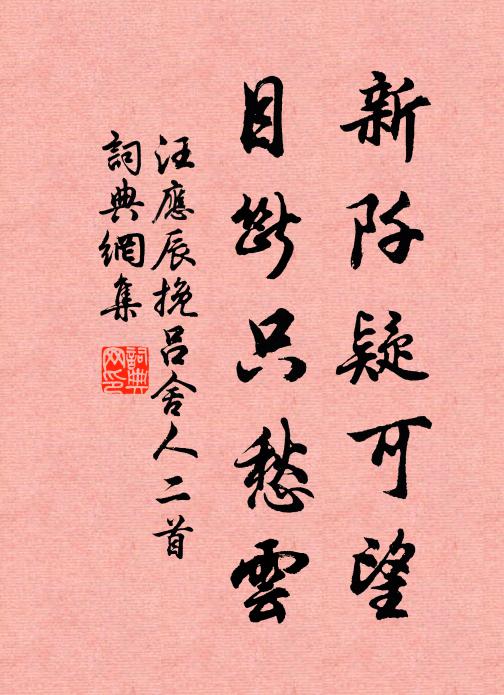 新阡疑可望
目斷只愁雲
汪應辰挽呂舍人二首
詞典網集
詞典網印